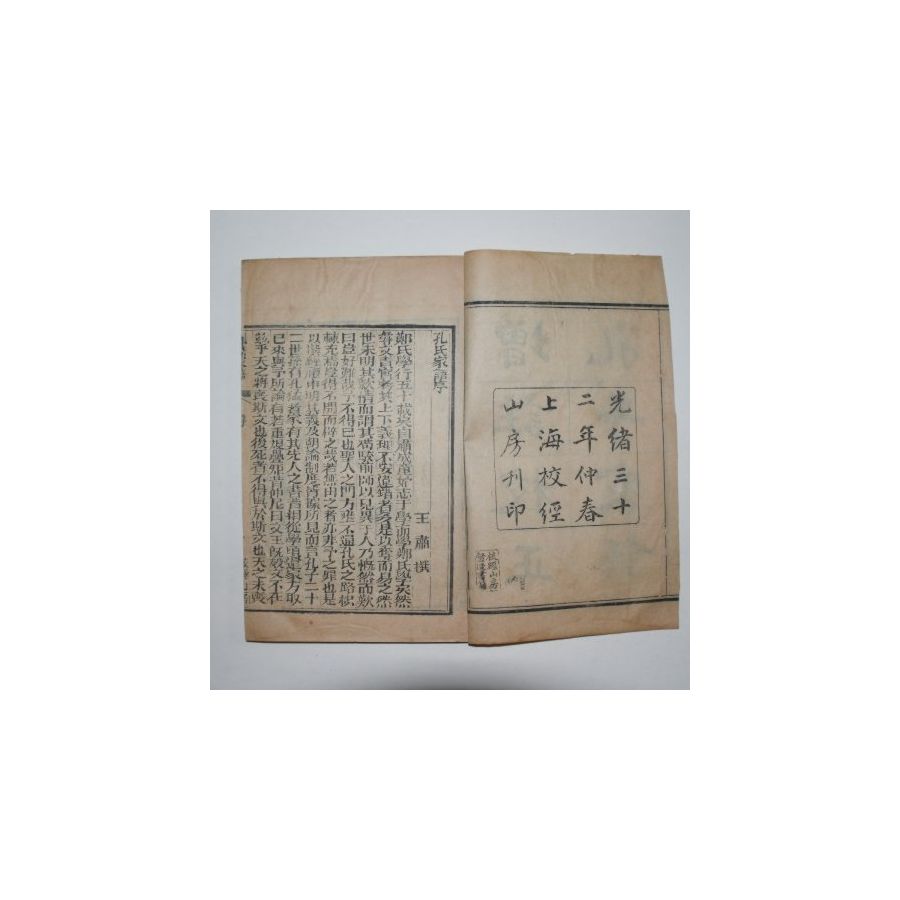 光緒三十
二年仲春
上海校經
山房刊印
孔氏家語序
王肅撰
鄭氏學行五十載矣自肅成童始志于學而學鄭氏學矣然
尋文責實考其上下義理不安違錯者多是以奪而易之然
世未明其款情而謂其苟駁前師以見異于人乃慨然而歎
曰豈好難哉予不得已也聖人之門方壅不通孔氏之路枳
棘充焉豈得不開而辟之哉若無由之者亦非予之罪也是
以撰經禮申明其義及朝論制度皆據所見而言孔子二十
二世孫有孔猛者家有其先人之書昔相從學頃還家方取
已來與予所論有若重規疊矩昔仲尼曰文王既歿文不在
茲乎天之將喪斯文也後死者不得與於斯文也天之未喪